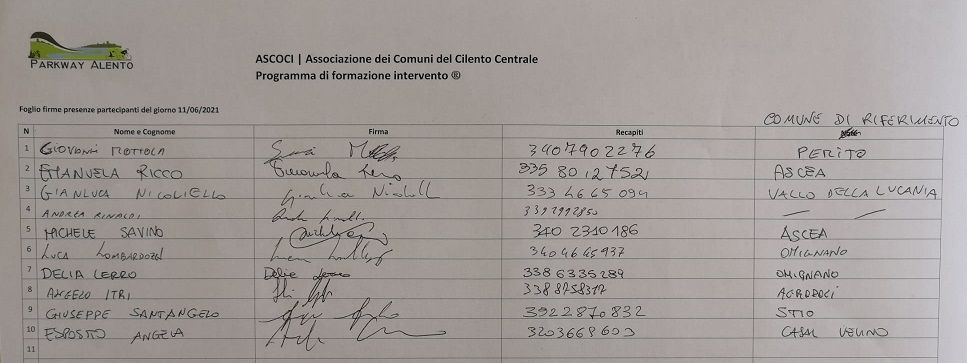 PARKWAY ALENTO
ASCOCI | Associazione dei Comuni del Cilento Centrale
Programma di formazione intervento ®
Foglio firme presenze partecipanti del giorno 11/06/2021
COMUNE DI RIFERIMENTO
N Nome e Cognome Firma Recapiti
1 GIOVANNI MOTTOLA 3407902276 PERITO
2 EMANUELA RICCO 335 8012752 ASCEA
3 GIANLUCA NICOLIELLO 333 4665094 VALLO DELLA LUCANIA
4 ANDREA RINALDI 3392992850
5 MICHELE SAVINO 340 2310186 ASCEA
6 LUCA LOMBARDOZZI 3404645937 OMIGNANO
7 DELIA LERRO Delia Lerro 338 6335289 OMIGNANO
8 ANGELO ITRI 3388758317 AGROPOLI
9 GIUSEPPE SANTANGELO 3922870832 STIO
10 ESPOSITO ANGELA 3203668609 CASAL VELINO
11